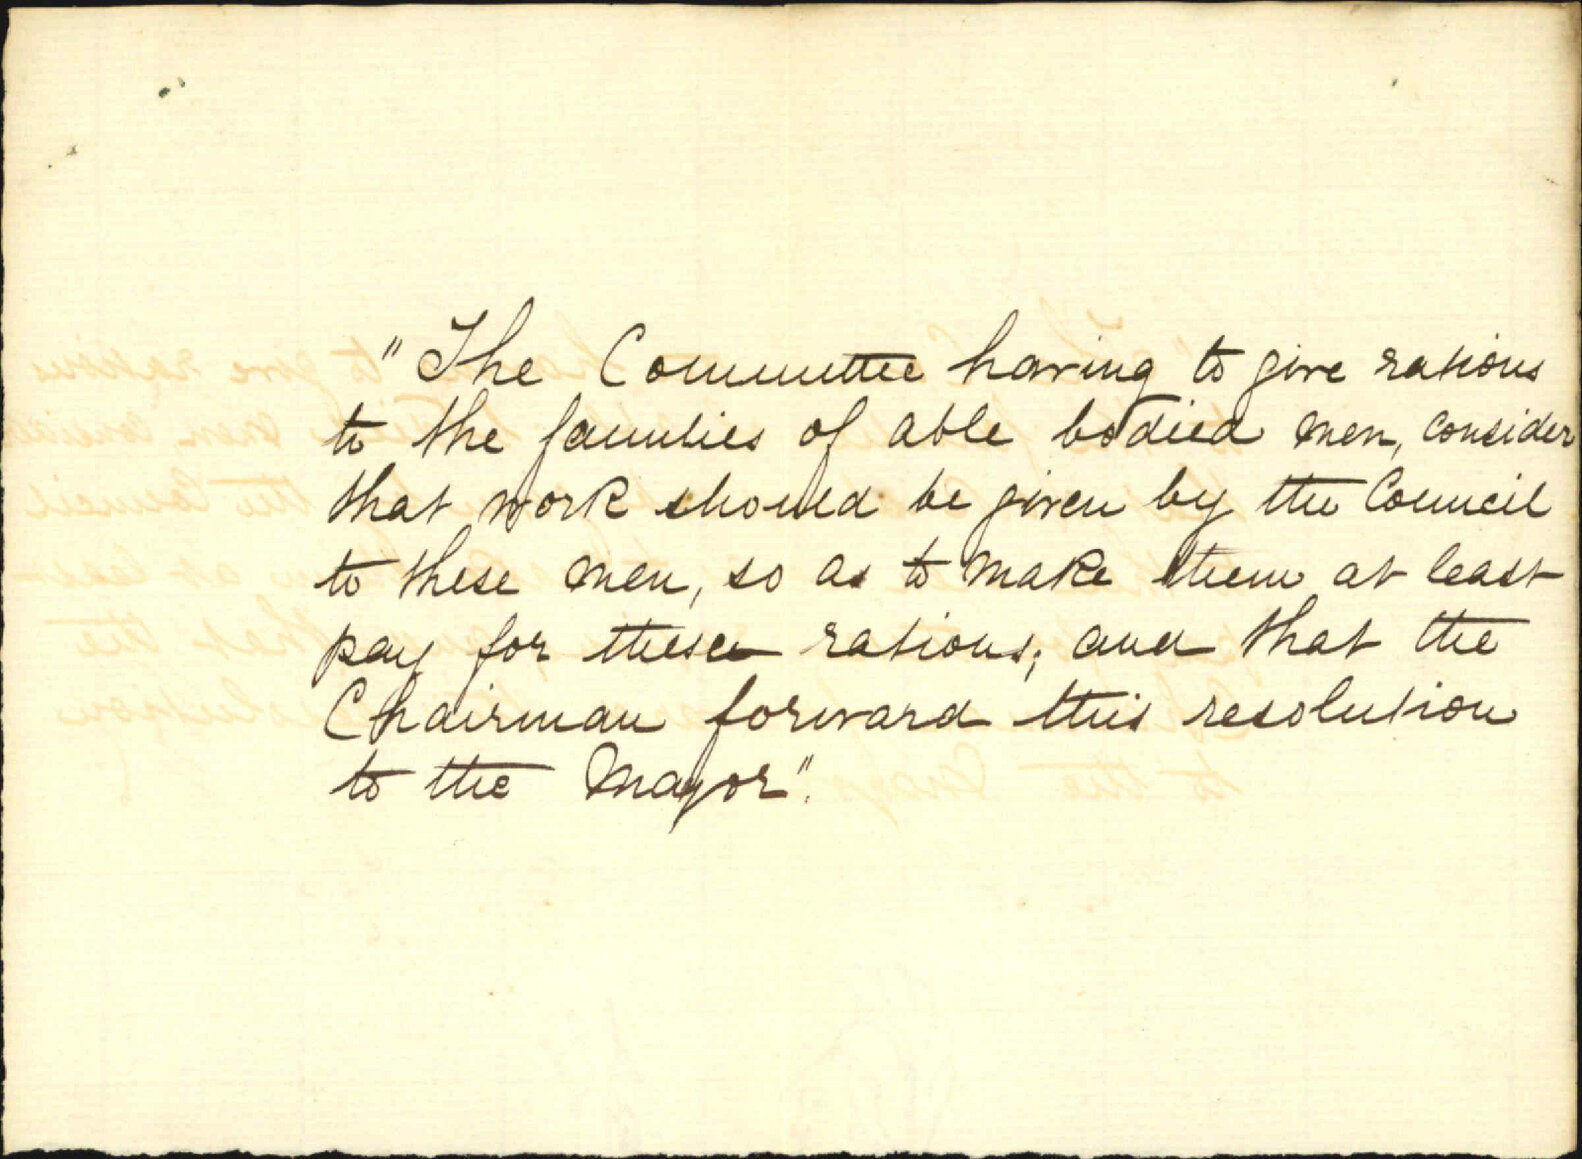 "The Committee having to give rations
to the families of able bodied men, consider
that work should be given by the Council
to these men, so as to make them at least
pay for these rations; and that the
Chairman forward this resolution
to the Mayor".